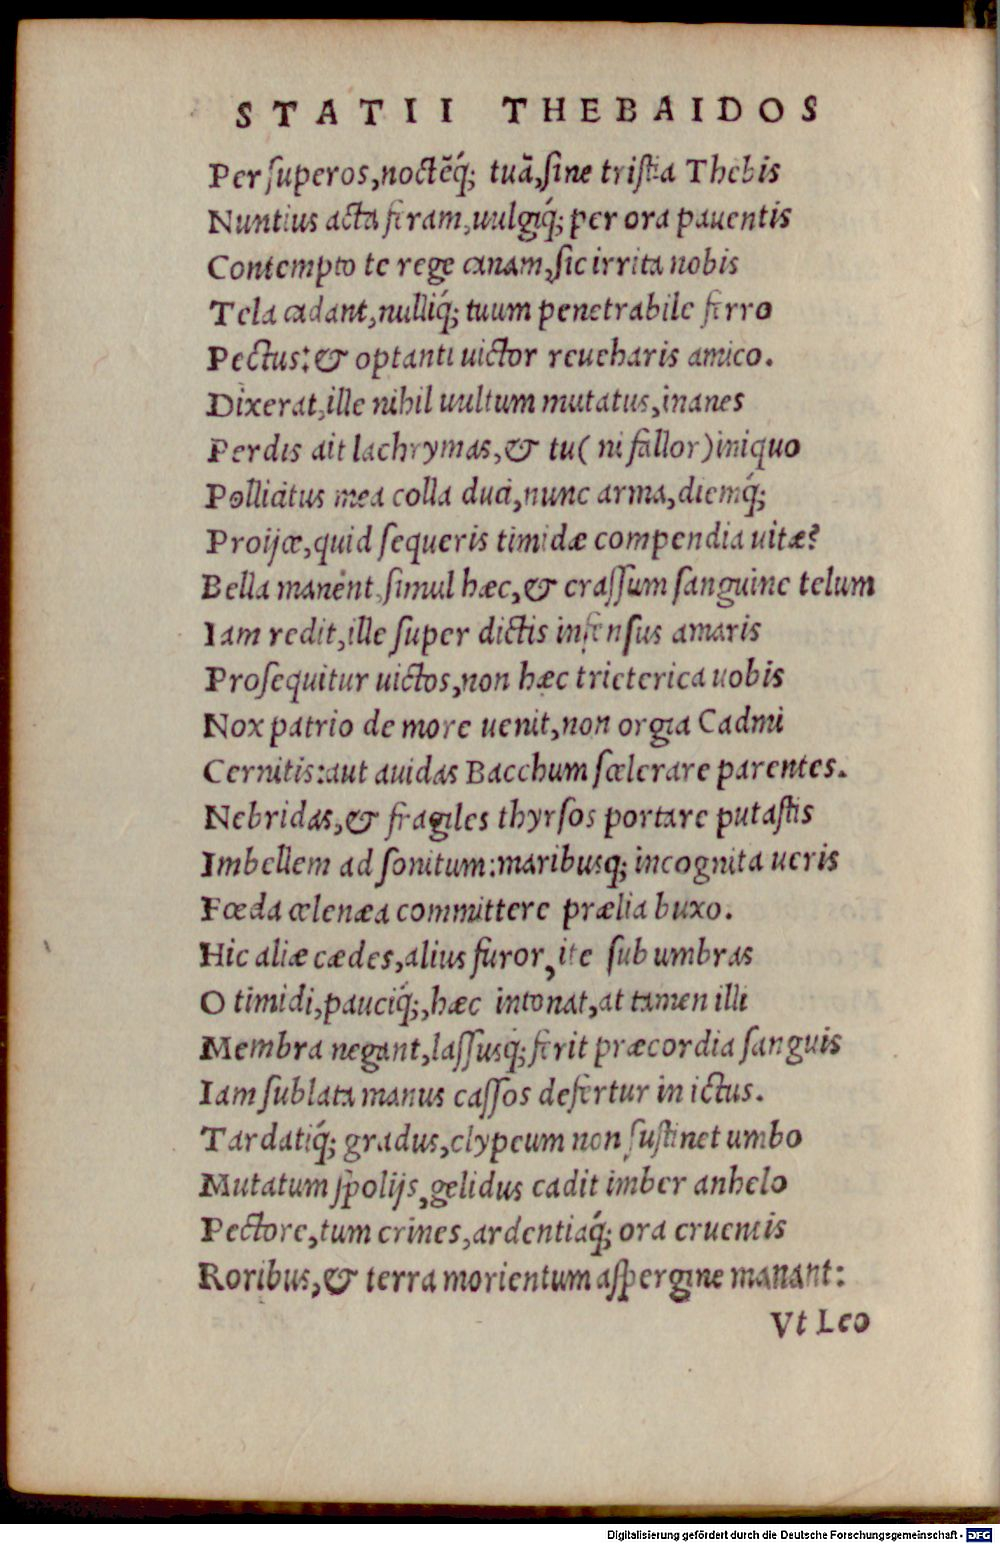 STATII THEBAIDOS
Per ſuperos,noctẽq́; tuã,ſine triſtia Thebis
Nuntius acta feram,uulgiq́; per ora pauentis
Contempto te rege canam,ſic irrita nobis
Tela cadant,nulliq́; tuum penetrabile ferro
Pectus:& optanti uictor reueharis amico.
Dixerat,ille nihil uultum mutatus,inanes
Perdis ait lachrymas,& tu( ni fallor)iniquo
Pollicitus mea colla duci,nunc arma,diemq́;
Proijce,quid ſequeris timidæ compendia uitæ?
Bella manent,ſimul hæc,& craſſum ſanguine telum
Iam redit,ille ſuper dictis infenſus amaris
Proſequitur uictos,non hæc trieterica uobis
Nox patrio de more uenit,non orgia Cadmi
Cernitis:aut auidas Bacchum ſcelerare parentes.
Nebridas,& fragiles thyrſos portare putaſtis
Imbellem ad ſonitum:maribusq; incognita ueris
Fœda celenæa committere prælia buxo.
Hic aliæ cædes,alius furor,ite ſub umbras
O timidi,pauciq́;,hæc intonat,at tamen illi
Membra negant,laſſusq; ferit præcordia ſanguis
Iam ſublata manus caſſos defertur in ictus.
Tardatiq́; gradus,clypeum non ſuſtinet umbo
Mutatum ſpolijs,gelidus cadit imber anhelo
Pectore,tum crines,ardentiaq́; ora cruentis
Roribus,& terra morientum aſpergine manant:
Vt Leo
Digitalisierung gefördert durch die Deutsche Forschungsgemeinschaft - DFG